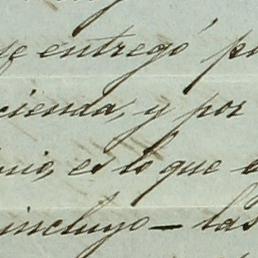 se entregó p
cienda, y por
nio, es lo que e
incluyo — las